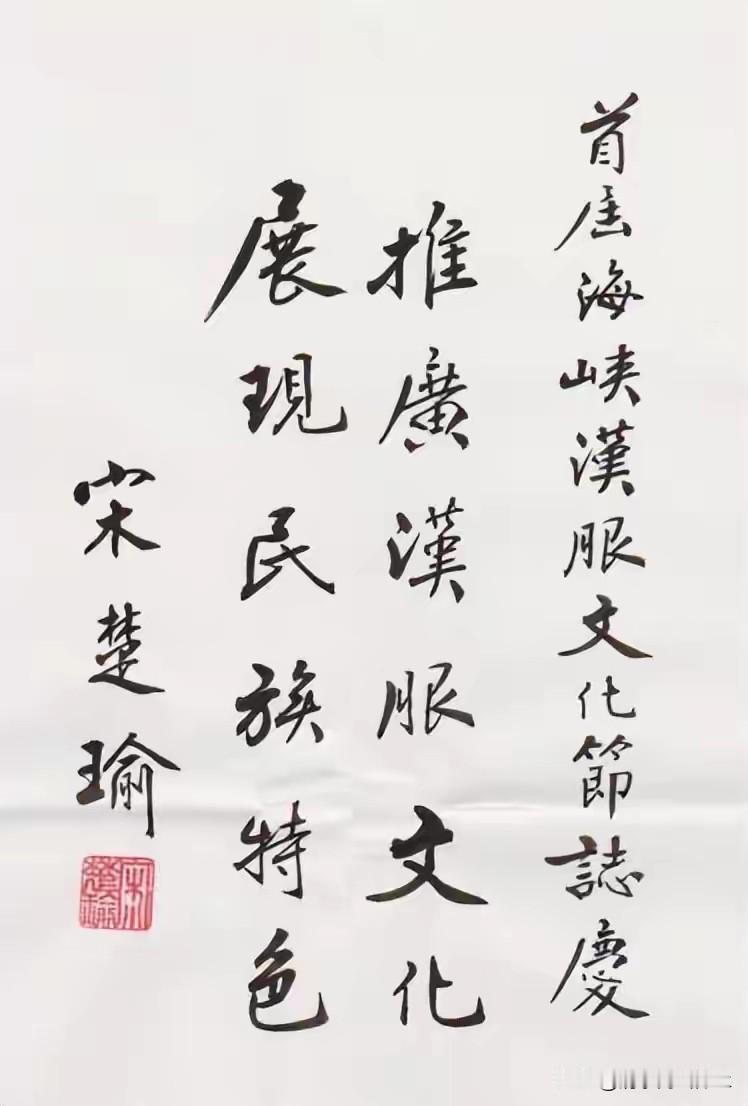 首届海峡漢服文化節誌慶
推廣漢服文化
展現民族特色
宋楚瑜
宋楚瑜